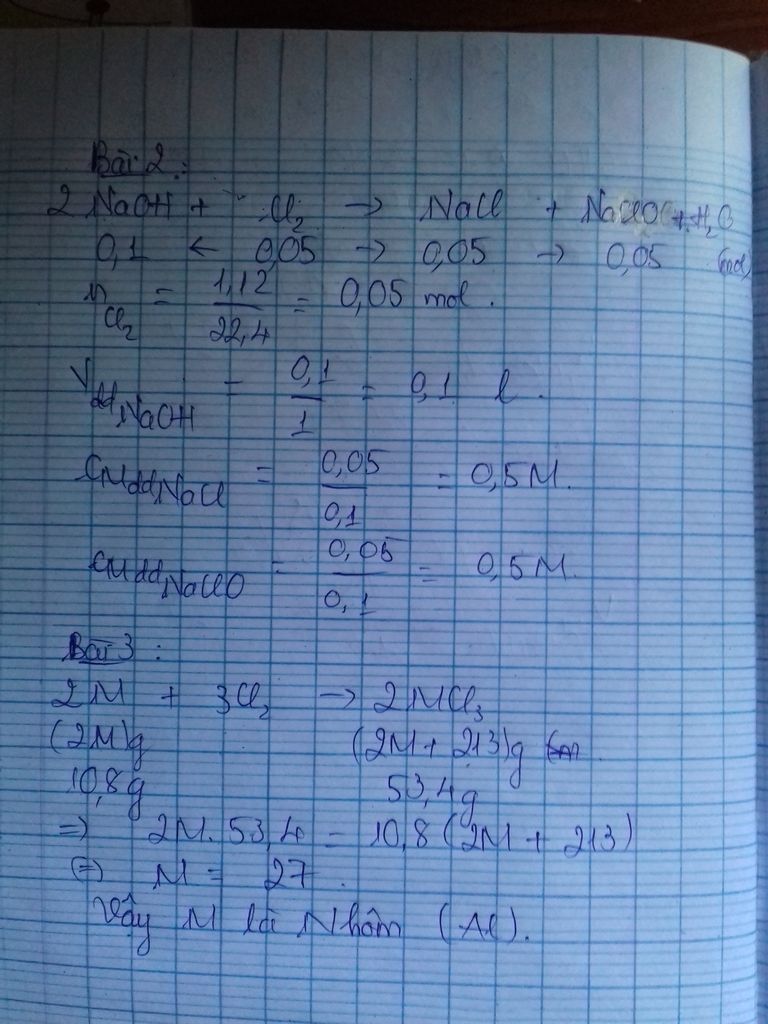 Bài 2:
2 NaOH + Cl₂ → NaCl + NaClO + H₂O
0,1 ← 0,05 → 0,05 → 0,05 (mol)
n Cl₂ = 1,12 / 22,4 = 0,05 mol.
V dd NaOH = 0,1 / 1 = 0,1 l.
CM dd NaCl = 0,05 / 0,1 = 0,5M.
CM dd NaClO = 0,05 / 0,1 = 0,5M.
Bài 3:
2M + 3Cl₂ → 2MCl₃
(2M)g (2M + 213)g
10,8g 53,4g
=> 2M. 53,4 = 10,8 (2M + 213)
(=) M = 27.
Vậy M là Nhôm (Al).